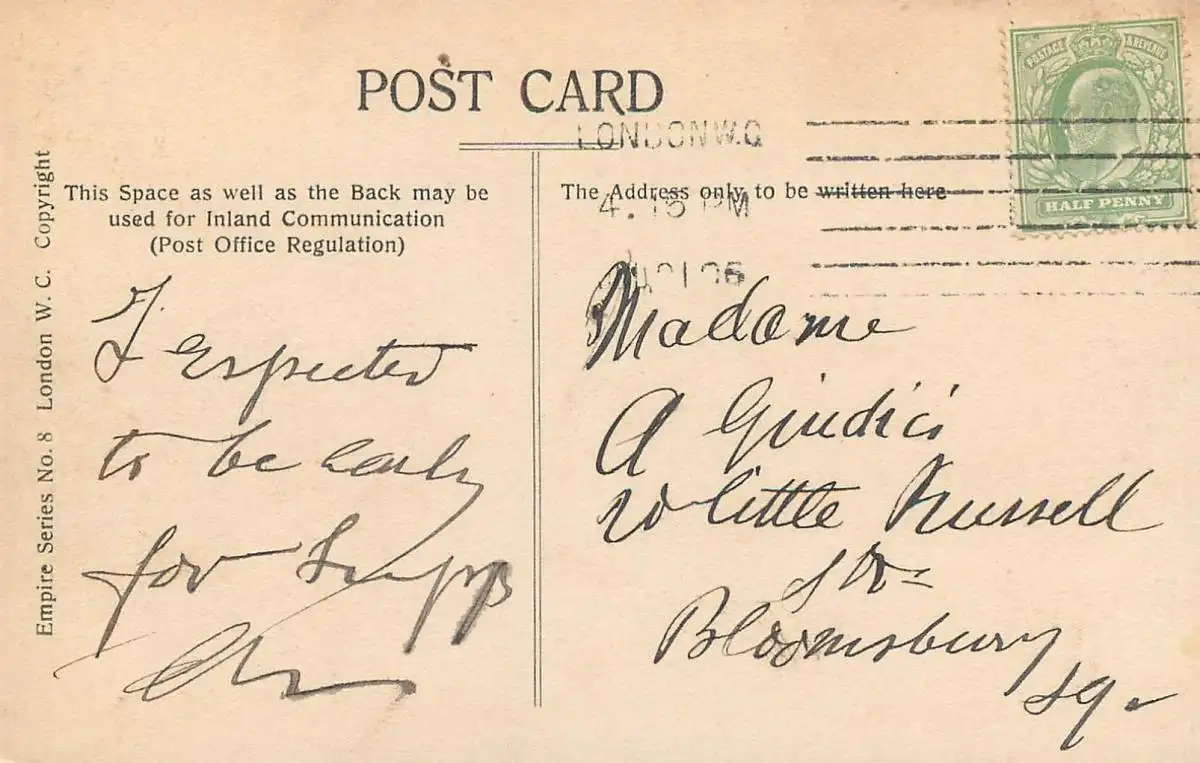 POST CARD
LONDON W.C
4.15 PM
This Space as well as the Back may be
used for Inland Communication
(Post Office Regulation)
The Address only to be written here
POSTAGE & REVENUE
HALF PENNY
Empire Series No. 8 London W. C. Copyright
I Expected
to be early
for Supp
Madame
A Giudici
20 little Russell
Str
Bloomsbury
Sq.